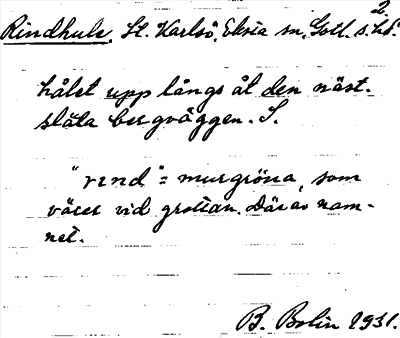 2.
Rindhule. St. Karlsö, Eksta sn, Gotl. s. hd.
hålet upp längs åt den näst.
släta bergväggen. S.
"rind" = murgröna, som
växer vid grottan. Därav nam-
net.
B. Bolin 1931.